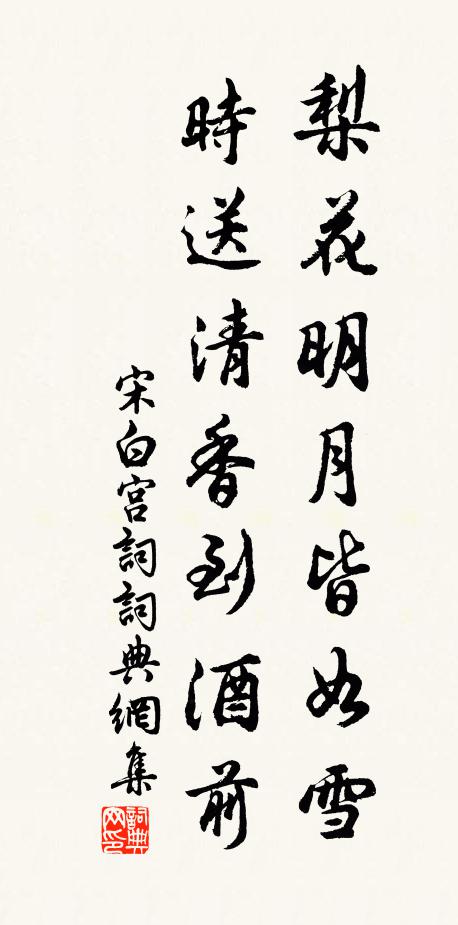 梨花明月皆如雪
時送清香到酒前
宋白宮詞詞典網集
詞典网印